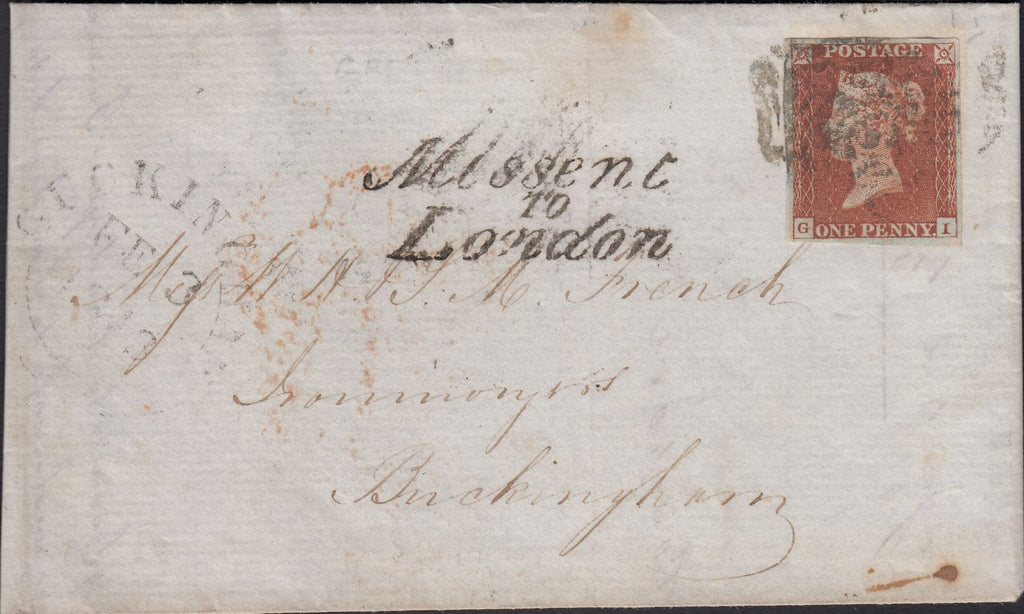 POSTAGE
ONE PENNY
G I
Missent
TO
London
BUCKINGHAM
FE 3
M. French
Ironmongers
Buckingham